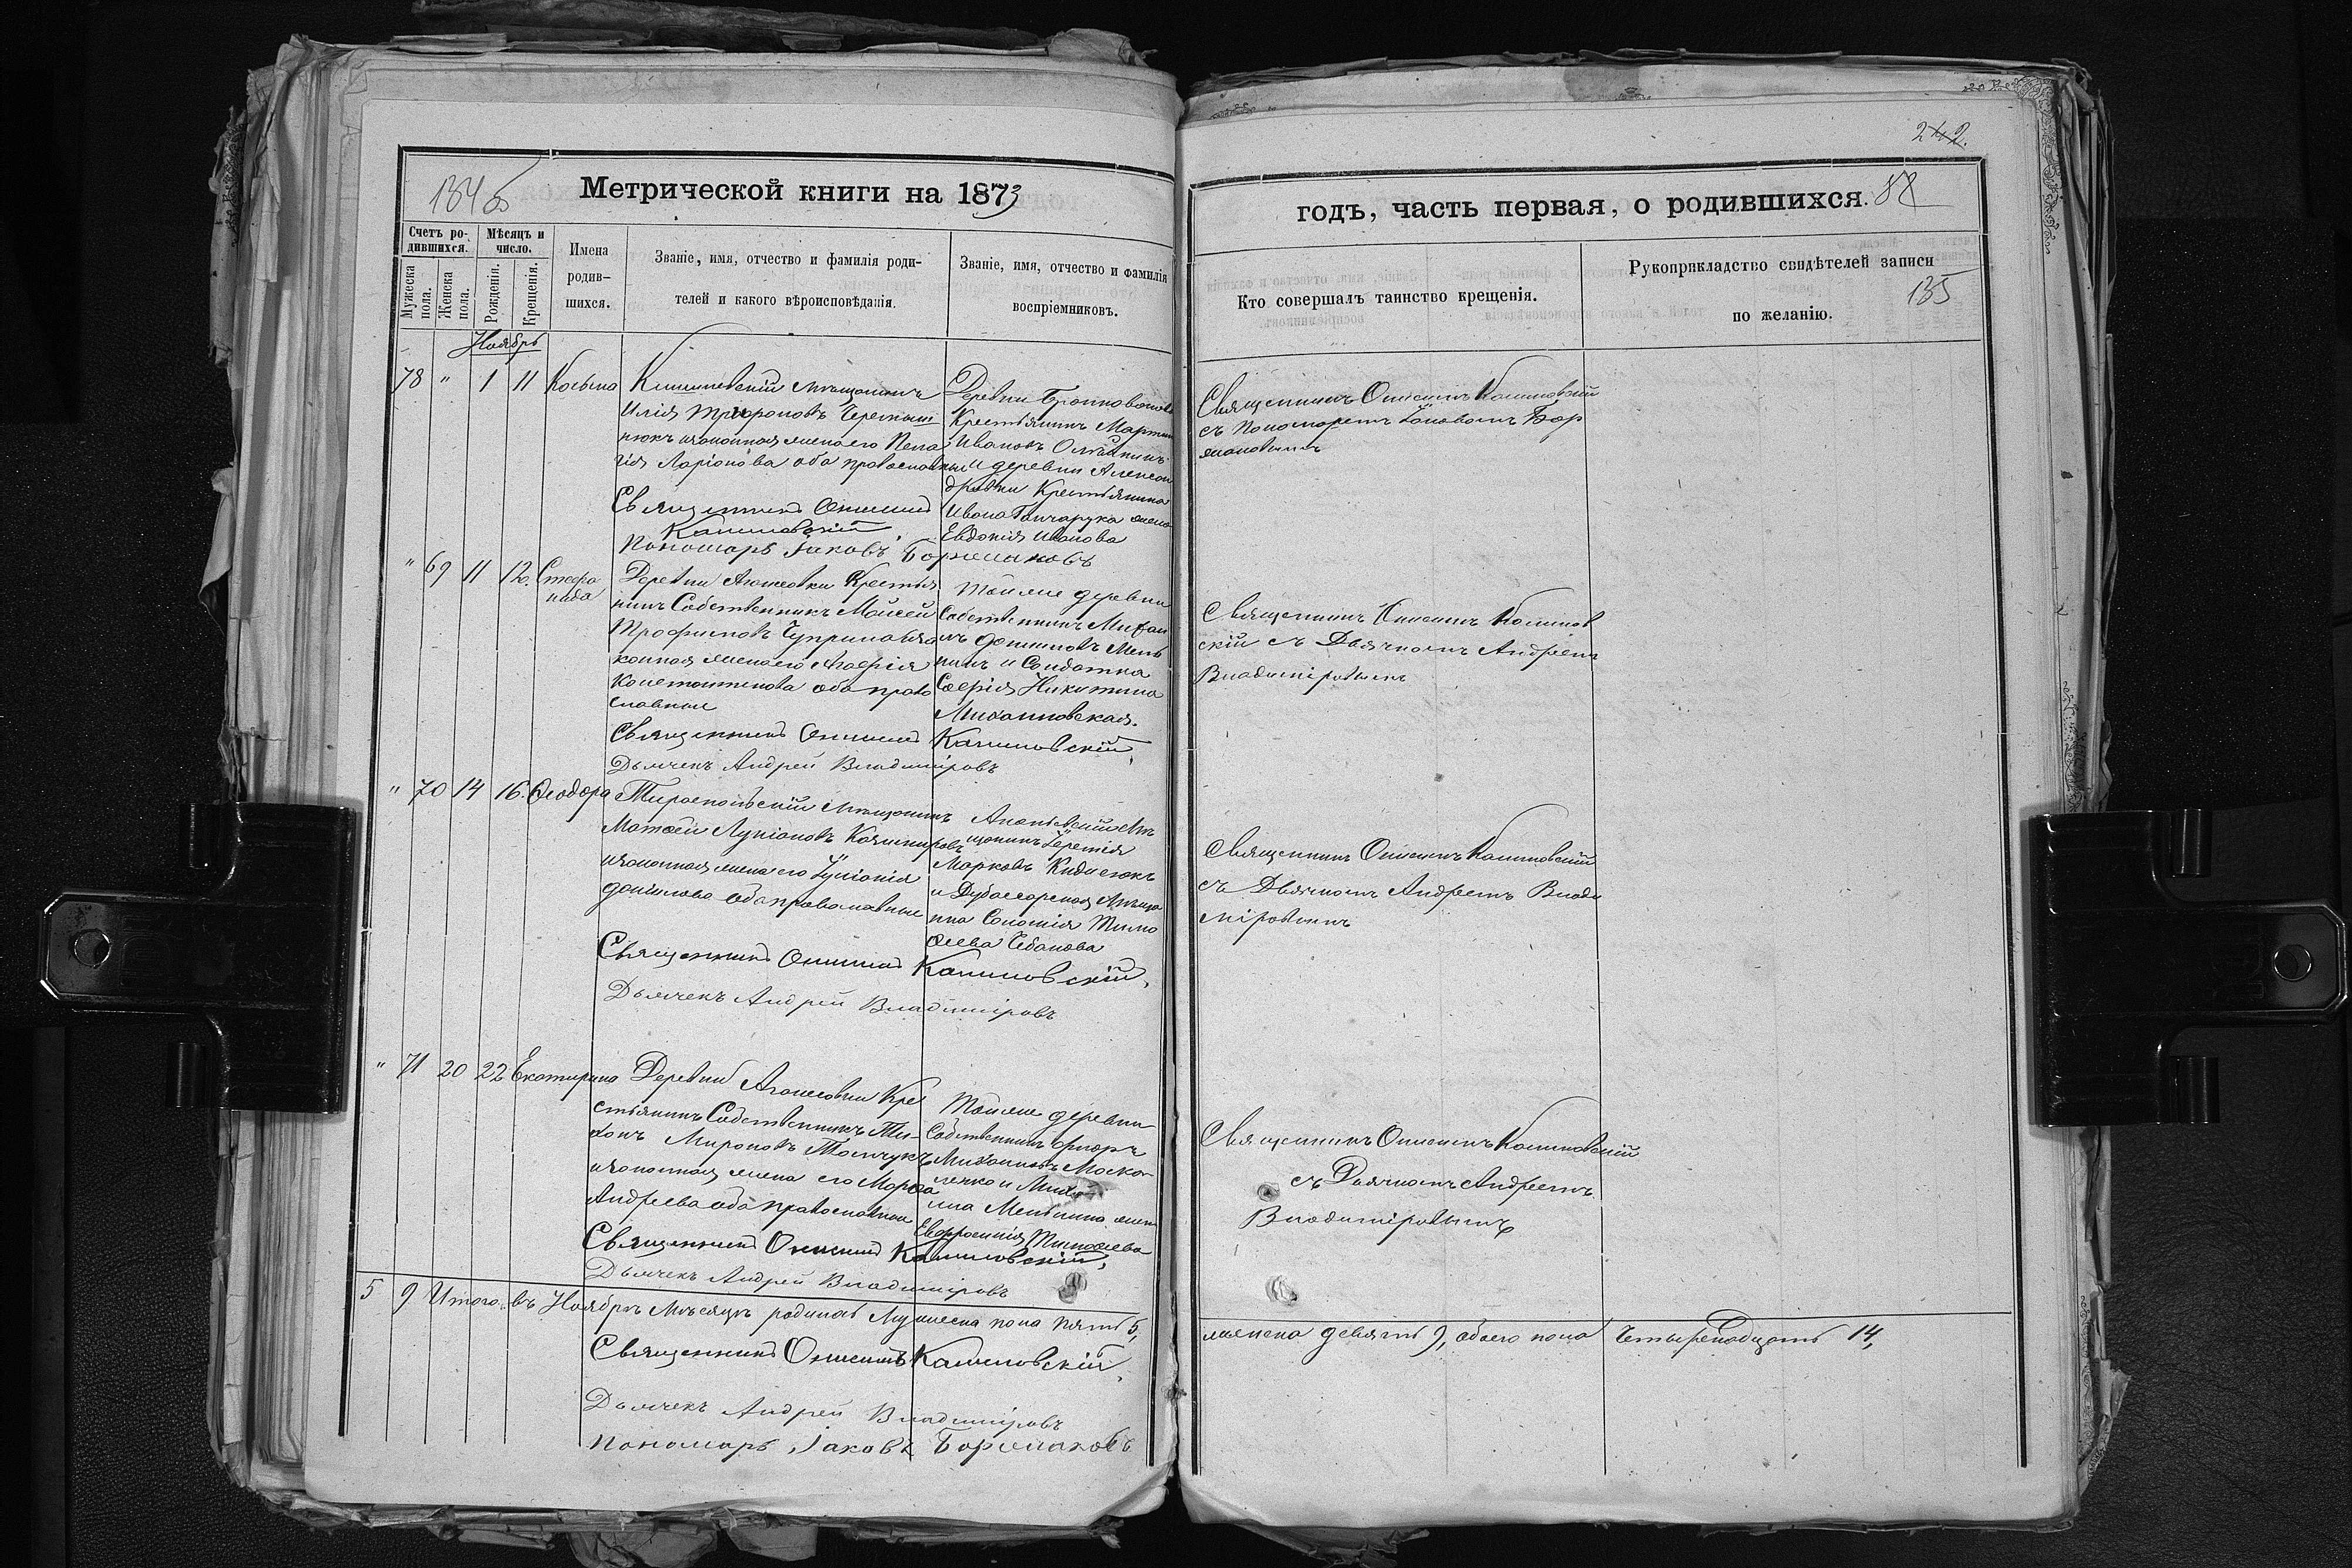 242.
134 об
Метрической книги на 1873
годъ, часть первая, о родившихся.
88
135
Счетъ ро-
дившихся.
Мужеска
пола.
Женска
пола.
Мѣсяцъ и
число.
Рожденія.
Крещенія.
Имена
родив-
шихся.
Званіе, имя, отчество и фамилія роди-
телей и какого вѣроисповѣданія.
Званіе, имя, отчество и фамилія
воспріемниковъ.
Кто совершалъ таинство крещенія.
Рукоприкладство свидѣтелей записи
по желанію.
Ноябрь
78 " 1 11 Косьма
Кишиневскій мѣщанинъ
Илія Трифоновъ
нюкъ изаконная жена его Пела
гія Ларіонова оба православные
Священникъ Онисимъ
Калиновскій
Пономарь Іаковъ
Деревни
Крестьянинъ Мартинъ
Ивановъ
и деревни Алексан
дровки Крестьянина
Ивана Гончарука жена
Евдокія Иванова
Священникъ Онисимъ Калиновскій
съ Пономаремъ Іаковомъ
" 69 11 12. Стефа
нида
Деревни Крестья
нинъ Собственникъ Моисей
Трофимовъ Чуприна иза
конная жена его Марфія
Константинова оба право
славные
Священникъ Онисимъ Калиновскій
Дьячекъ Андрей Владиміровъ
Той же деревни
Собственникъ Михаи
лъ Даниловъ Мель
никъ и Солдатка
Софія Никитина
Михайловская.
Священникъ Онисимъ Калинов
скій съ Дьячкомъ Андреемъ
Владиміровымъ
" 70 14 16. Ѳеодора
Тираспольскій мѣщанинъ
Матѳей Лукіановъ Кашнировъ
изаконная жена его Іуліанія
Данілова оба православные
Священникъ Онисимъ Калиновскій
Дьячекъ Андрей Владиміровъ
Ананьевскій мѣ
щанинъ Іеремія
Марковъ
и Дубоссарская мѣща
нка Соломія Тимо
ѳеева Чебанова
Священникъ Онисимъ Калиновскій
съ Дьячкомъ Андреемъ Влади
міровымъ
" 71 20 22 Екатирина
Деревни Кре
стьянинъ Собственникъ Ти-
хонъ Мироновъ Томчукъ
изаконная жена его Марѳа
Андреева оба православные
Священникъ Онисимъ Калиновскій
Дьячекъ Андрей Владиміровъ
Той же деревни
Собственникъ Флоръ
Михайловъ Моска-
ленко и Миха
ила Мельника жена
Евфросинія Тимоѳеева
Священникъ Онисимъ Калиновскій
съ Дьячкомъ Андреемъ
Владиміровымъ
5 9 Итого въ Ноябрѣ мѣсяцѣ родилось Мужеска пола пять 5,
женска девять 9, обоего пола Четыренадцать 14,
Священникъ Онисимъ Калиновскій
Дьячекъ Андрей Владиміровъ
Пономарь Іаковъ